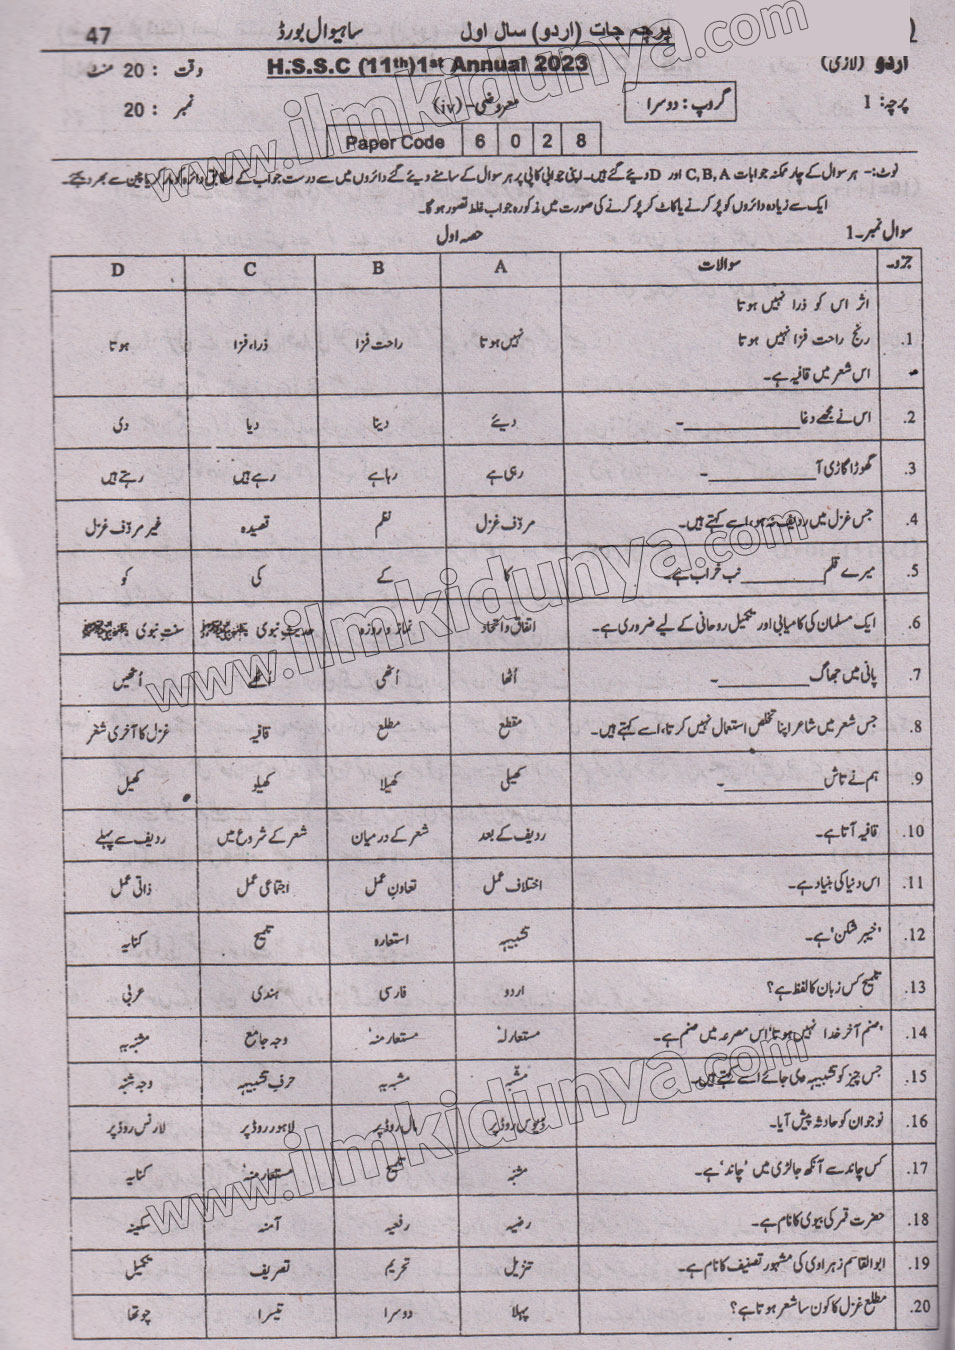 47 ساہیوال بورڈ پرچہ جات (اردو) سال اول
اردو (لازمی) H.S.S.C (11th)1st Annual 2023 وقت : 20 منٹ
پرچہ: 1 گروپ: دوسرا معروضی-(iv) نمبر : 20
Paper Code 6 0 2 8
نوٹ:- ہر سوال کے چار ممکنہ جوابات C, B, A اور D دیئے گئے ہیں۔ اپنی جوابی کاپی پر ہر سوال کے سامنے دیئے گئے دائروں میں سے درست جواب کے مطابق دائرہ کو مارکر یا پین سے بھر دیجئے۔
ایک سے زیادہ دائروں کو پُر کرنے یا کاٹ کر پُر کرنے کی صورت میں مذکورہ جواب غلط تصور ہو گا۔
سوال نمبر-1 حصہ اول
جزو۔ سوالات A B C D
1. اثر اس کو ذرا نہیں ہوتا
رنج راحت فزا نہیں ہوتا
اس شعر میں قافیہ ہے۔ نہیں ہوتا راحت فزا ذرا، فزا ہوتا
2. اس نے مجھے دغا ________۔ دیئے دینا دیا دی
3. گھوڑا گاڑی آ ________۔ رہی ہے رہا ہے رہے ہیں رہتے ہیں
4. جس غزل میں ردیف نہ ہو، اسے کہتے ہیں۔ مردّف غزل نظم قصیدہ غیر مردّف غزل
5. میرے قلم ________ نب خراب ہے۔ کا کے کی کو
6. ایک مسلمان کی کامیابی اور تکمیل روحانی کے لیے ضروری ہے۔ اتفاق و اتحاد نماز و روزہ حدیثِ نبوی ﷺ سنتِ نبوی ﷺ
7. پانی میں جھاگ ________۔ اُٹھا اُٹھی اُٹھے اُٹھیں
8. جس شعر میں شاعر اپنا تخلص استعمال نہیں کرتا، اسے کہتے ہیں۔ مقطع مطلع قافیہ غزل کا آخری شعر
9. ہم نے تاش ________۔ کھیلی کھیلا کھیلو کھیل
10. قافیہ آتا ہے۔ ردیف کے بعد شعر کے درمیان شعر کے شروع میں ردیف سے پہلے
11. اس دنیا کی بنیاد ہے۔ اختلاف عمل تعاونِ عمل اجتماعی عمل ذاتی عمل
12. 'خیبر شکن' ہے۔ تشبیہہ استعارہ تلمیح کنایہ
13. تلمیح کس زبان کا لفظ ہے؟ اردو فارسی ہندی عربی
14. 'صنم آخر خدا نہیں ہوتا' اس مصرعہ میں صنم ہے۔ مستعار لہٗ مستعار منہٗ وجہ جامع مشبّہ بہ
15. جس چیز کو تشبیہہ دی جائے اسے کہتے ہیں۔ مشبّہ مشبہ بہ حرفِ تشبیہہ وجہ شبہ
16. نوجوان کو حادثہ پیش آیا۔ ڈیوس روڈ پر مال روڈ پر لاہور روڈ پر لارنس روڈ پر
17. کس چاند سے آنکھ جا لڑی میں 'چاند' ہے۔ مشبّہ تلمیح مستعار منہٗ کنایہ
18. حضرت قمر کی بیوی کا نام ہے۔ رضیہ رفعیہ آمنہ سکینہ
19. ابوالقاسم زہراوی کی مشہور تصنیف کا نام ہے۔ تنزیل تحریم تصریف تکمیل
20. مطلع غزل کا کون سا شعر ہوتا ہے؟ پہلا دوسرا تیسرا چوتھا
www.ilmkidunya.com
www.ilmkidunya.com
www.ilmkidunya.com